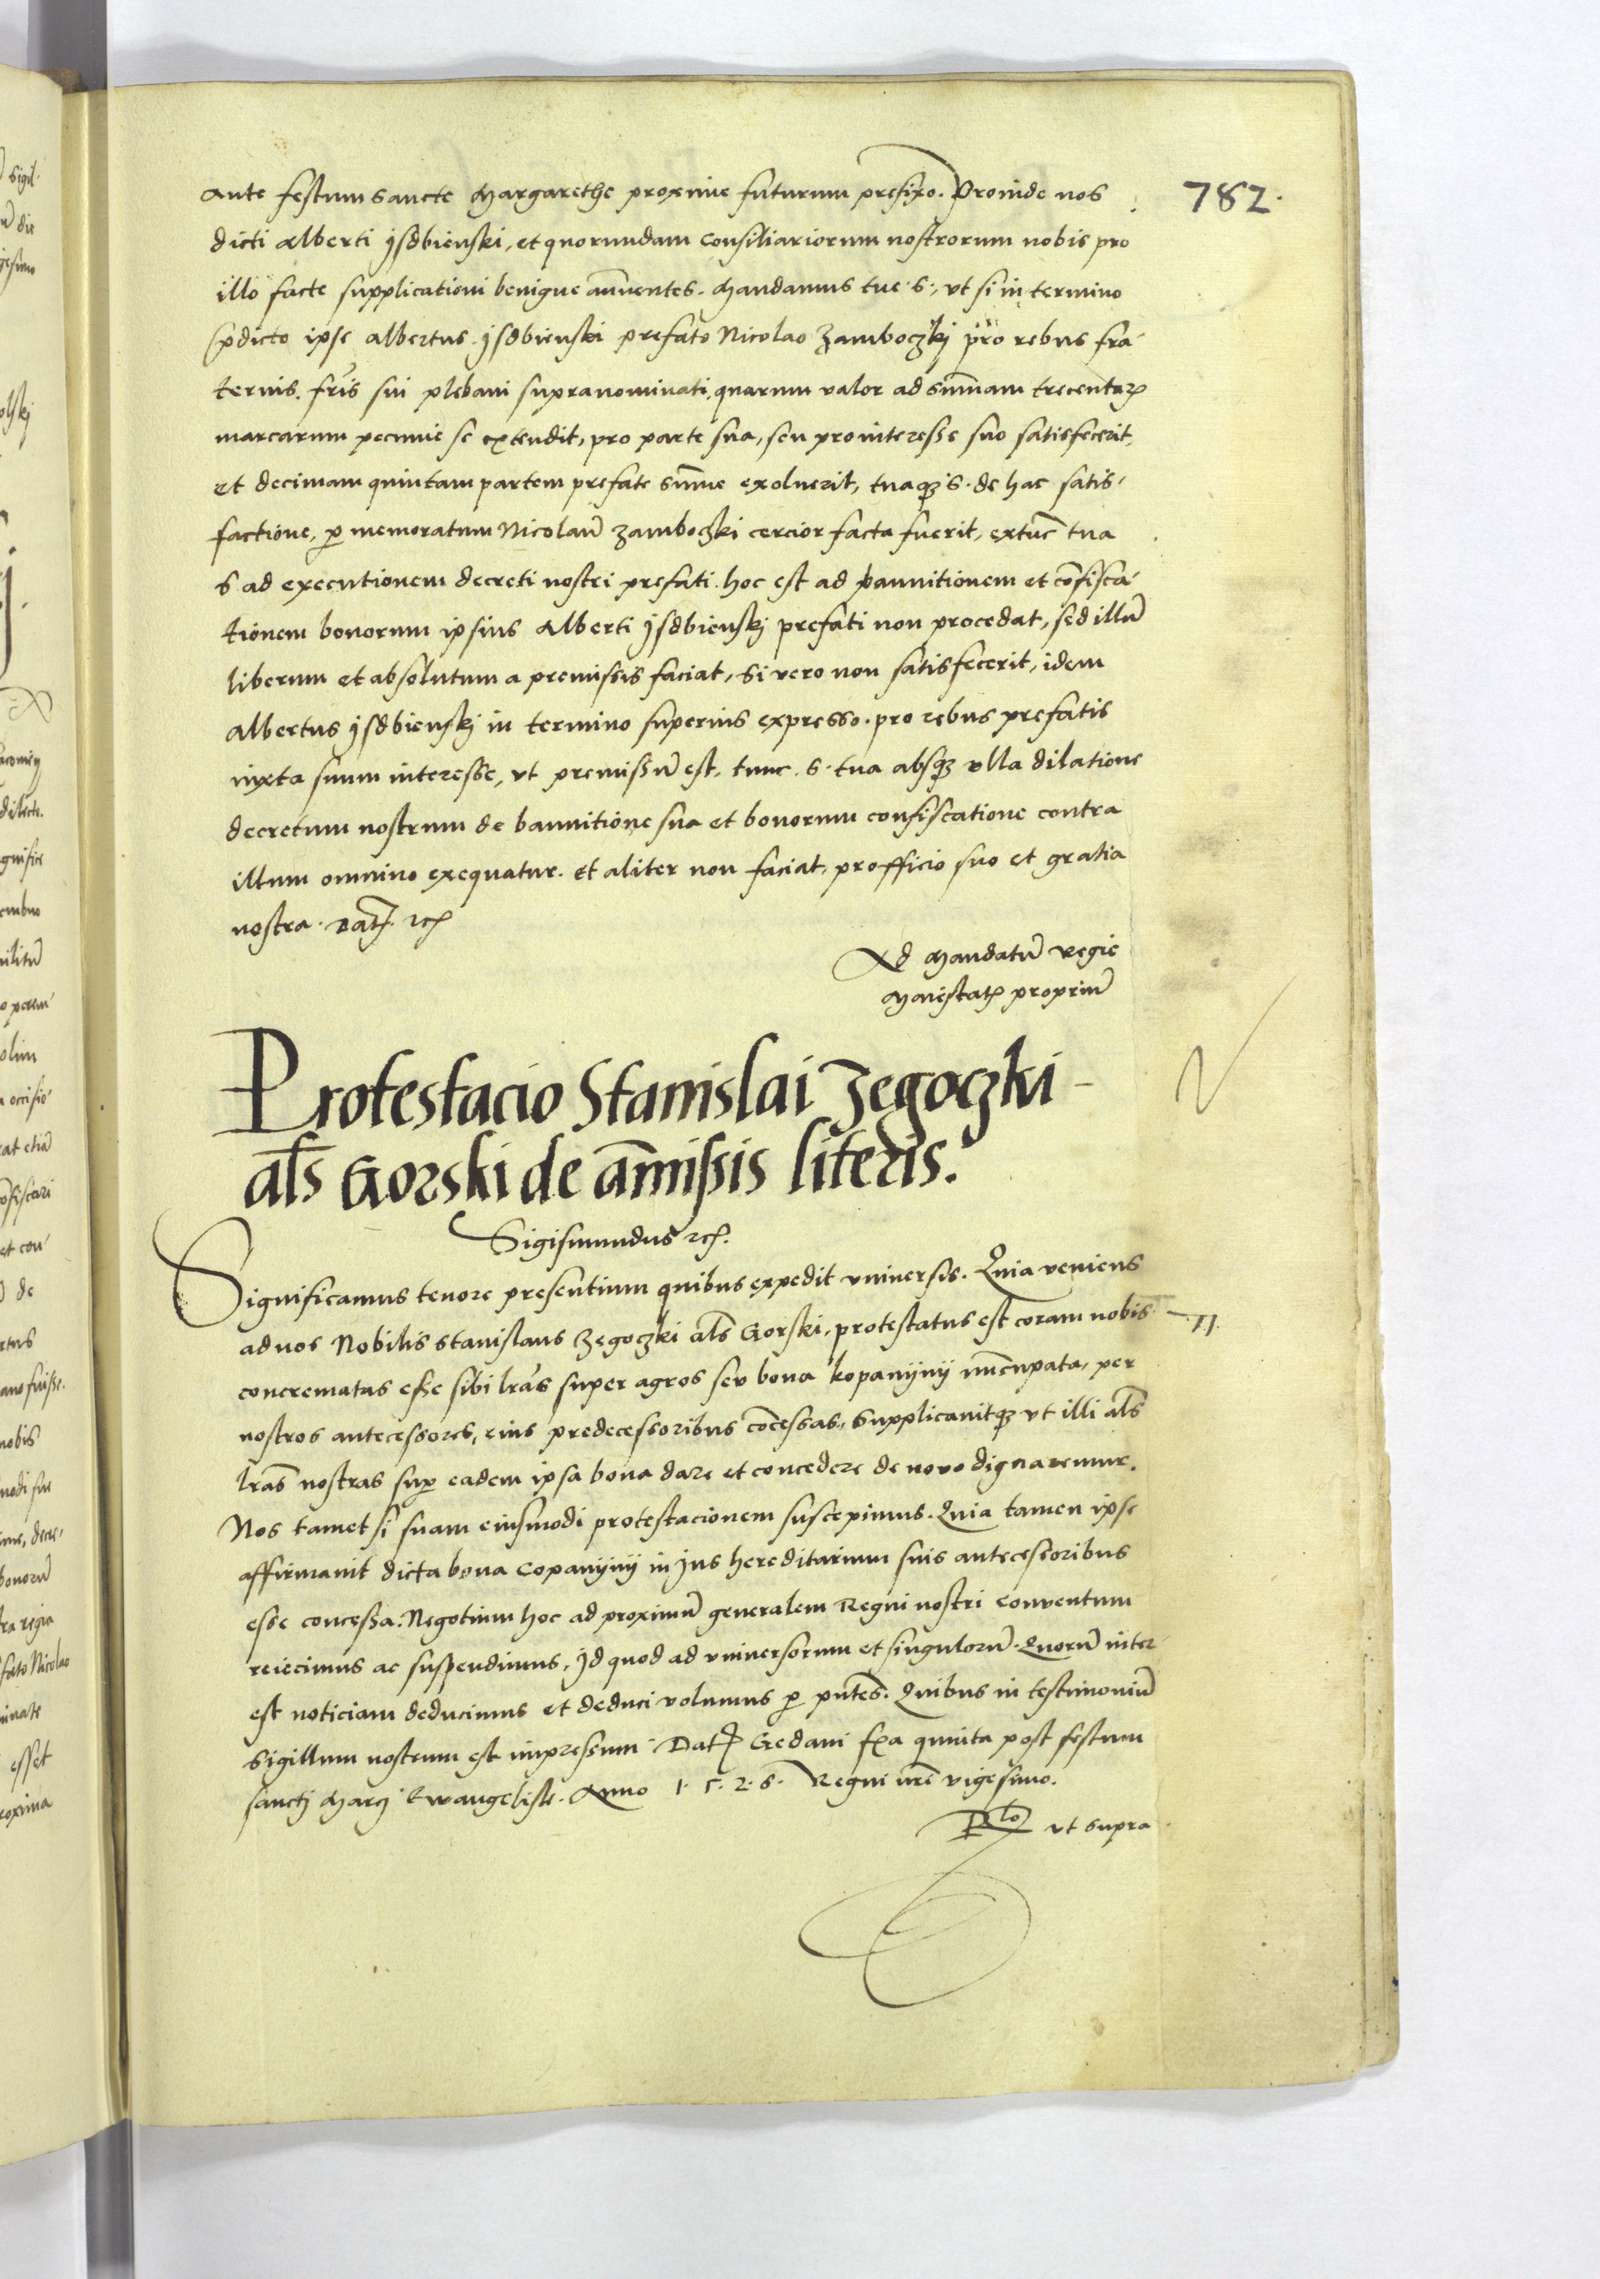 782.
ante festum sancte Margarethe proxime futurum prefixo. Proinde nos
dicti Alberti Jsdbienski, et quorundam consiliariorum nostrorum nobis pro
illo facte supplicationi benigne an̄uentes. Mandamus tue. S., vt si in termino
p̄dicto ipse Albertus Jsdbienski prefato Nicolao Zamboczkj pro rebus fra-
ternis. fris̄ sui plebani supranominati, quarum valor ad sum̄am trecentaꝝ
marcarum pecunie se extendit, pro parte sua, seu pro interesse suo satisfecerit,
et decimam quintam partem prefate sum̄e exoluerit, tuaqꝫ S. de hac satis-
factione, ꝑ memoratum Nicolaū Zamboczki cercior facta fuerit, extūc tua
S ad executionem decreti nostri prefati. hoc est ad bannitionem et cōfisca-
tionem bonorum ipsius Alberti Jsdbienskj prefati non procedat, sed illū
liberum et absolutum a premissis faciat, Si vero non satisfecerit, idem
Albertus Jsdbienskj in termino superius expresso. pro rebus prefatis
iuxta suum interesse, vt premissū est, tunc. S. tua absqꝫ vlla dilatione
decretum nostrum de bannitione sua et bonorum confiscatione contra
illum omnino exequatur. et aliter non faciat, pro officio suo et gratia
nostra. Datꝭ. ꝛcꝭ
Ad Mandatū Regie
Maiestatꝭ propriū
Protestacio Stanislai Zegoczki
al̄s Gorski de am̄issis literis.
Sigismundus ꝛcꝭ.
Significamus tenore presentium quibus expedit vniuersis. Quia veniens
ad nos Nobilis Stanislaus Zegoczki al̄s Gorski, protestatus est coram nobis
concrematas esse sibi lr̄as super agros seu bona kopanijnij nūcupata, per
nostros antecessores, eius predecessoribus cōcessas, Supplicauitqꝫ vt illi al̄s
lr̄as nostras suꝑ eadem ipsa bona dare et concedere de nouo dignaremur.
Nos tamet si suam eiusmodi protestacionem suscepimus. Quia tamen ipse
affirmauit dicta bona Copanijnij in Jus hereditarium suis antecessoribus
esse concessa. Negotium hoc ad proximū generalem Regni nostri conventum
reiecimus ac suspendimus, Jd quod ad vniuersorum et singulorū. Quorū inter-
est noticiam deducimus et deduci volumus ꝑ pn̄tes. Quibus in testimoniū
Sigillum nostrum est impressum. Datꝭ Gedani fꝫa quinta post festum
sanctj Marcj Ewangeliste. Anno 1.5.2.6. Regni nr̄e vigesimo.
Rlo vt supra